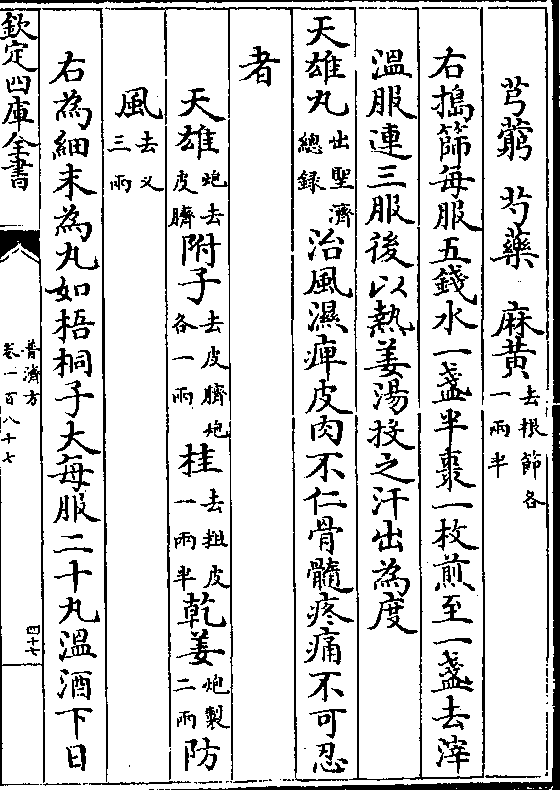 芎藭 芍藥 麻黄去根節各一兩半
右搗篩每服五錢水一盞半棗一枚煎至一盞去滓
溫服連三服後以熱姜湯投之汗出為度
天雄丸出聖濟總錄 治風濕痺皮肉不仁骨髓疼痛不可忍
者
天雄炮去皮臍 附子去皮臍炮各一兩 桂去粗皮一兩半 乾姜炮製二兩 防
風去义三兩
右為細末為丸如梧桐子大每服二十丸溫酒下日
欽定四庫全書
普濟方
卷一百八十七
四十七